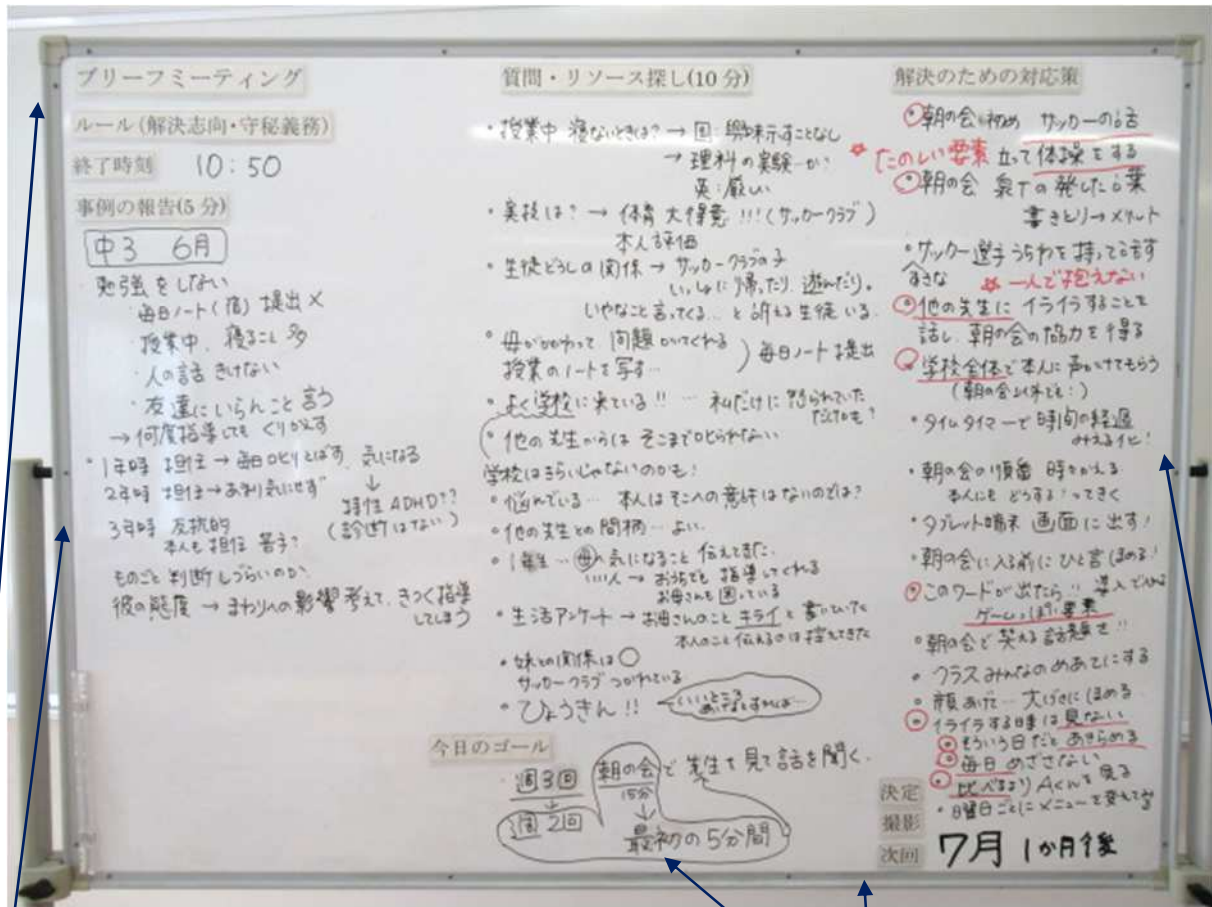 ブリーフミーティング
ルール(解決志向・守秘義務)
終了時刻 10:50
事例の報告(5分)
中3 6月
勉強をしない
・毎日ノート(宿)提出×
・授業中、寝ること多
・人の話 きけない
・友達にいらんこと言う
→何度指導しても くりかえす
・1年時 担任→毎日叱りとばす、気になる
2年時 担任→あまり気にせず
特性 ADHD??
(診断はない)
3年時 反抗的
本人も担任 苦手?
ものごと判断しづらいのか
彼の態度 → まわりへの影響考えて、きつく指導
してしまう
質問・リソース探し(10分)
・授業中 寝ないときは? → 国:興味示すことなし
→ 理科の実験…か?
英:厳しい
・実技は? → 体育 大得意!!!(サッカークラブ)
本人評価
・生徒どうしの関係 → サッカークラブの子
いっしょに帰ったり、遊んだり。
いやなこと言ってくる…と訴える生徒いる。
・母がかわって 問題かいてくれる
授業のノートを写す…
)毎日ノート提出
・よく学校に来ている!! … 私だけに怒られていた
だけかも?
・他の先生からは そこまで叱られない
学校はきらいじゃないのかも!
・悩んでいる… 本人はそこへの意識はないのでは?
・他の先生との間柄… よい。
・1年生… 母へ気になること 伝えてきた。
いい人 → おうちでも 指導してくれる
お母さんも困っている
・生活アンケート → お母さんのこと キライと書いていた
本人のこと伝えるのは控えてきた
・妹との関係は○
サッカークラブ つかれている
・ひょうきん!!
今日のゴール
・週3回
↓
週2回
朝の会で 先生を見て話を聞く。
15分
↓
最初の5分間
解決のための対応策
・朝の会 初め サッカーの話
☆たのしい要素 立って体操をする
・朝の会 泉Tの発した言葉
書きとり→メリット
・サッカー選手 うちわを持って話す
すきな
☆一人で抱えない
・他の先生に イライラすることを
話し、朝の会の協力を得る
・学校全体で本人に声かけてもらう
(朝の会以外でも!)
・タイムタイマーで時間の経過
みえる化!
・朝の会の順番 時々かえる
本人にも どうする?ってきく
・タブレット端末 画面に出す!
・朝の会に入る前に ひと言ほめる!
・このワードが出たら!! 導入で入れる
ゲームっぽい要素
・朝の会で笑える話題を!!
・クラスみんなのめあてにする
・顔あげて… 大げさにほめる
・イライラする時は 見ない
・もういう日だと あきらめる
・毎日 めざさない
・比べるより Aくんを見る
・曜日ごとにメニューを変えてみる
決定
撮影
次回 7月 1か月後